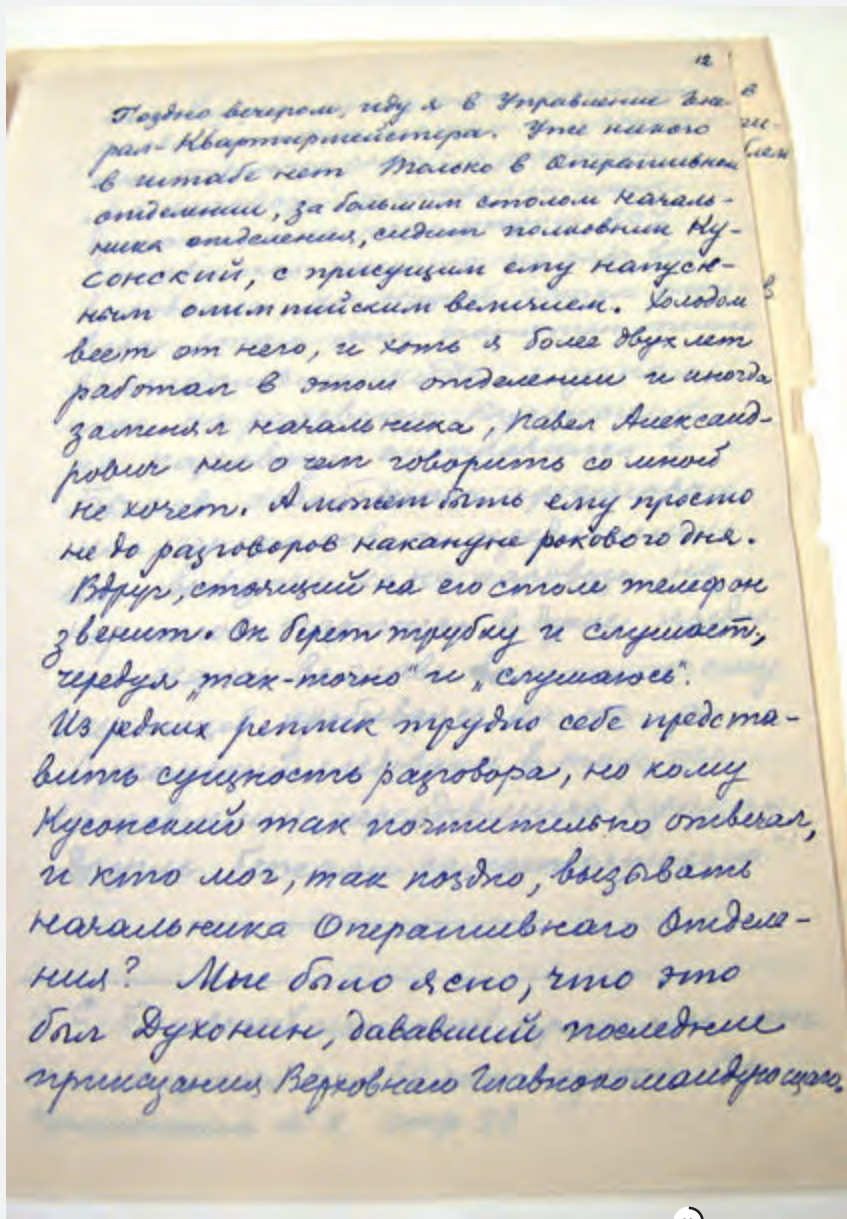 12
Поздно вечером, иду я в Управление Гене-
рал-Квартирмейстера. Уже никого
в штабе нет Только в Оперативном
отделении, за большим столом началь-
ника отделения, сидит полковник Ку-
сонский, с присущим ему напуск-
ным олимпийским величием. Холодом
веет от него, и хоть я более двух лет
работал в этом отделении и иногда
заменял начальника, Павел Александ-
рович ни о чем говорить со мной
не хочет. А может быть ему просто
не до разговоров накануне рокового дня.
Вдруг, стоящий на его столе телефон
звенит. Он берет трубку и слушает,
чередуя „так-точно" и „слушаюсь".
Из редких реплик трудно себе предста-
вить сущность разговора, но кому
Кусонский так почтительно отвечал,
и кто мог, так поздно, вызывать
начальника Оперативнаго Отделе-
ния? Мне было ясно, что это
был Духонин, дававший последние
приказания Верховнаго Главнокомандующаго.
в